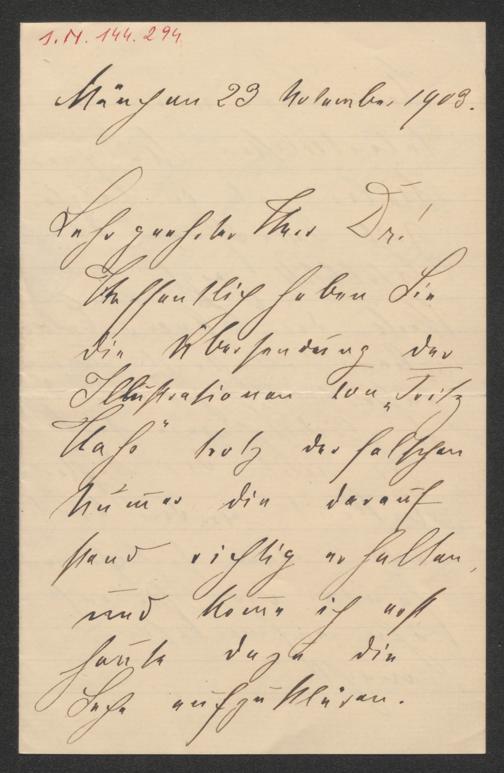 J.N. 144.294
München 23 November 1903.
Sehr geehrter Herr Dr!
Hoffentlich haben Sie
die Übersendung der
Illustrationen von „Fritz
trotz der falschen
Nummer die darauf
stand richtig erhalten,
und komme ich erst
heute dazu die
Sache aufzuklären.